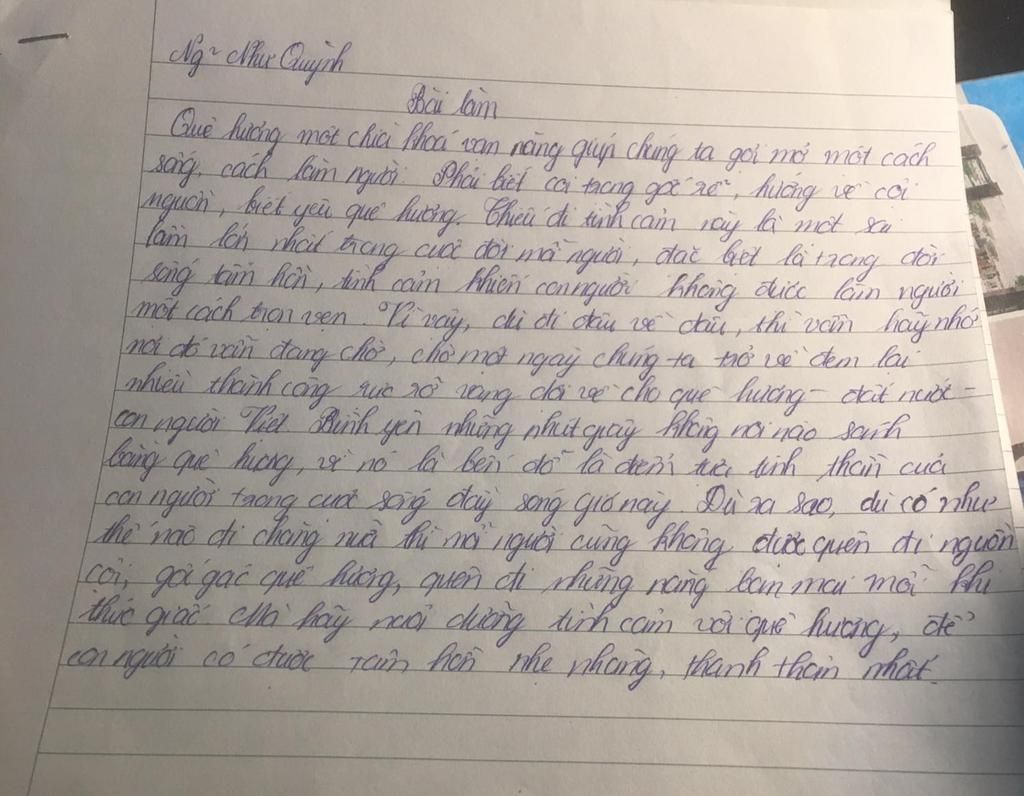 Ng~ Như Quỳnh
Bài làm
Quê hương một chìa khoá vạn năng giúp chúng ta gợi mở một cách
sống, cách làm người. Phải biết coi trọng gốc rễ, hướng về cội
nguồn, biết yêu quê hương. Thiếu đi tình cảm này là một sai
lầm lớn nhất trong cuộc đời mỗi người, đặc biệt là trong đời
sống tâm hồn, tình cảm khiến con người không được làm người
một cách trọn vẹn. Vì vậy, dù đi đâu về đâu, thì vẫn hãy nhớ
nơi đó vẫn đang chờ, chờ một ngày chúng ta trở về đem lại
nhiều thành công rực rỡ vang dội về cho quê hương - đất nước -
con người Việt Bình yên những phút giây không nơi nào sánh
bằng quê hương, vì nó là bến đỗ là điểm tựa tinh thần của
con người trong cuộc sống đầy sóng gió này. Dù ra sao, dù có như
thế nào đi chăng nữa thì mỗi người cũng không được quên đi nguồn
cội, gốc gác quê hương, quên đi những nắng ban mai mỗi khi
thức giấc. Mà hãy nuôi dưỡng tình cảm với quê hương, để
con người có được tâm hồn nhẹ nhàng, thanh thản nhất.